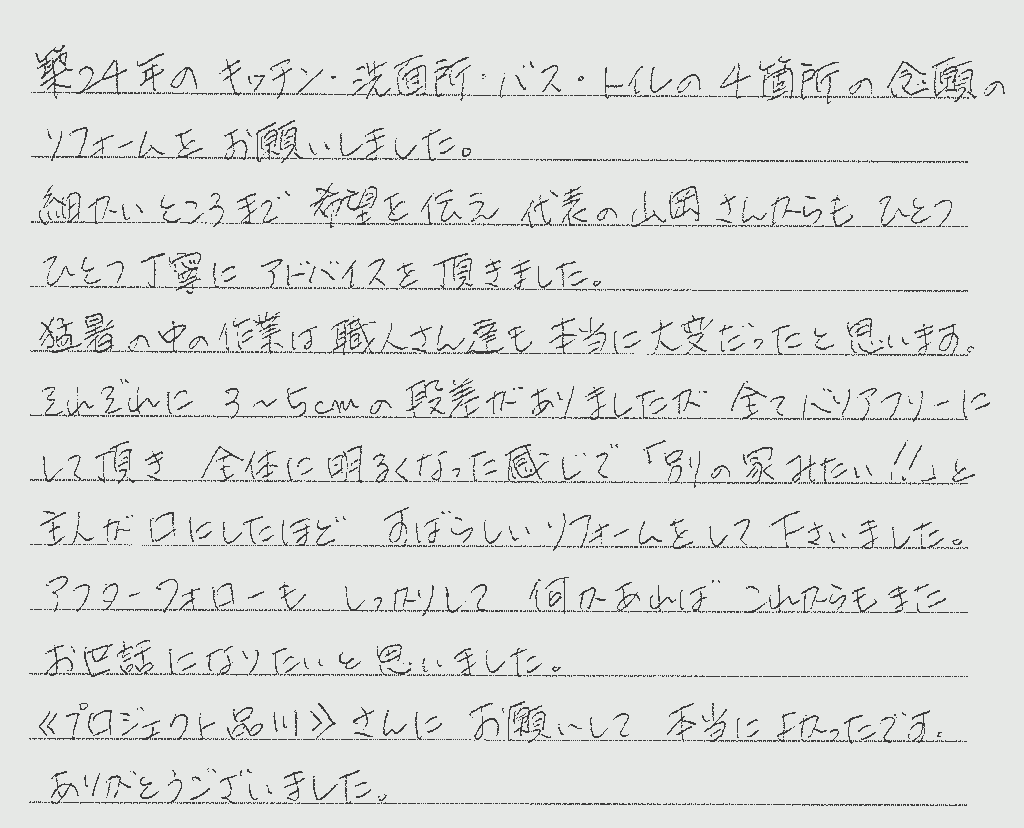 築24年の キッチン・洗面所・バス・トイレの 4箇所の 念願の
リフォームを お願いしました。
細かいところまで 希望を 伝え 代表の 山岡 さんからも ひとつ
ひとつ 丁寧に アドバイスを 頂きました。
猛暑の中の作業は 職人さん達も 本当に大変だったと思います。
それぞれに 3〜5cmの 段差がありましたが 全てバリアフリーに
して頂き 全体に明るくなった感じで「別の家みたい!!」と
主人が口にしたほど すばらしいリフォームをして下さいました。
アフターフォローも しっかりして 何かあれば これからもまた
お世話になりたいと思いました。
《プロジェクト品川》さんに お願いして 本当によかったです。
ありがとうございました。